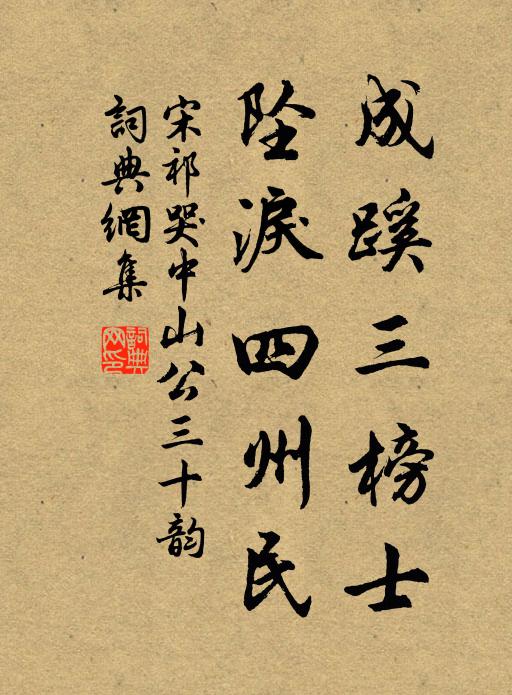 成蹊三榜士
墜淚四州民
宋祁哭中山公三十韵
詞典網集
詞典网印